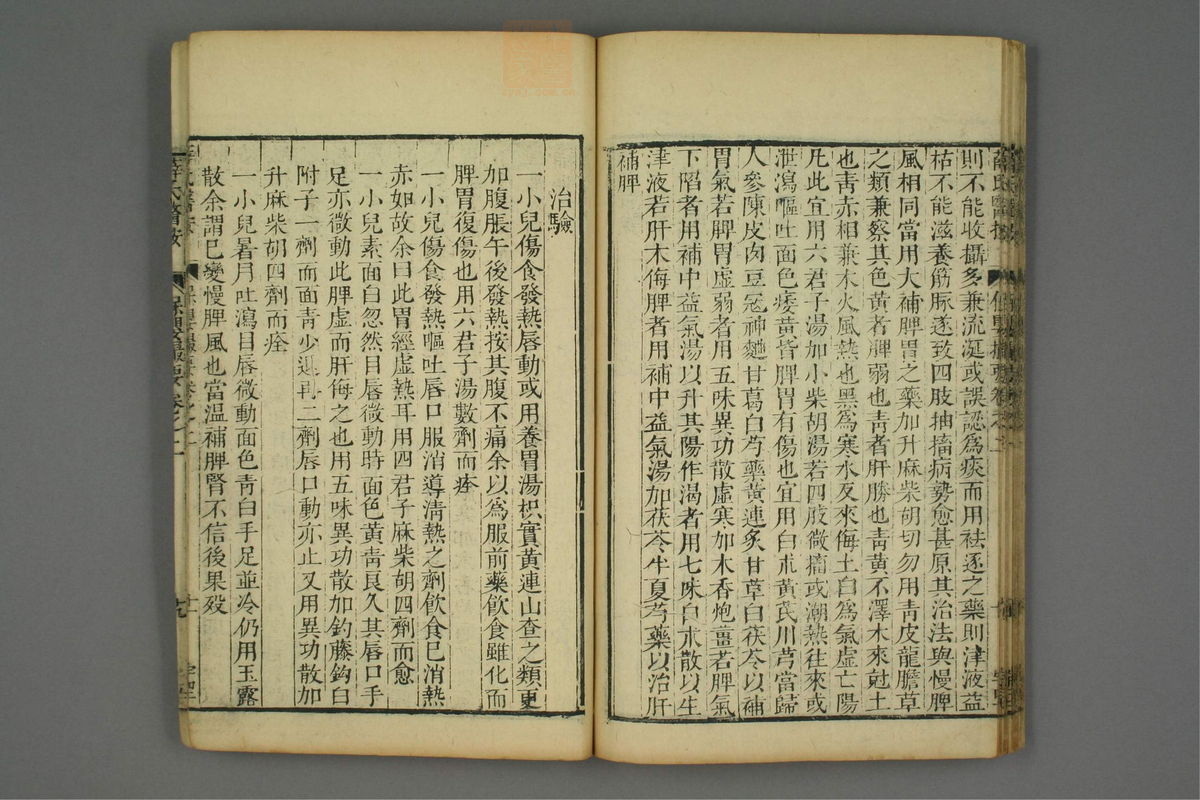 則不能收攝多兼流涎或誤認爲痰而用祛逐之藥則津液益
枯不能滋養筋脉遂致四肢抽搐病勢愈甚原其治法與慢脾
風相同當用大補脾胃之藥加升麻柴胡切勿用青皮龍膽草
之類兼察其色黃者脾弱也青者肝勝也青黃不澤木來尅土
也青赤相兼木火風熱也黑爲寒水反來侮土白爲氣虛亡陽
凡此宜用六君子湯加小柴胡湯若四肢微搐或潮熱往來或
泄瀉嘔吐面色痿黃皆脾胃有傷也宜用白朮黃芪川芎當歸
人參陳皮肉豆冦神麯甘葛白芍藥黃連炙甘草白茯苓以補
胃氣若脾胃虛弱者用五味異功散虛寒加木香炮薑若脾氣
下陷者用補中益氣湯以升其陽作渴者用七味白朮散以生
津液若肝木侮脾者用補中益氣湯加茯苓半夏芍藥以治肝
補脾
治驗
一小兒傷食發熱唇動或用養胃湯枳實黃連山查之類更
加腹脹午後發熱按其腹不痛余以爲服前藥飲食雖化而
脾胃復傷也用六君子湯數劑而痊
一小兒傷食發熱嘔吐唇口服消導清熱之劑飲食已消熱
赤如故余曰此胃經虛熱耳用四君子麻柴胡四劑而愈
一小兒素面白忽然目唇微動時面色黃青良久其唇口手
足亦微動此脾虛而肝侮之也用五味異功散加釣藤鈎白
附子一劑而面青少退再二劑唇口動亦止又用異功散加
升麻柴胡四劑而痊
一小兒暑月吐瀉目唇微動面色青白手足並冷仍用玉露
散余謂已變慢脾風也當温補脾腎不信後果殁
薛氏醫按
保嬰撮要卷之二